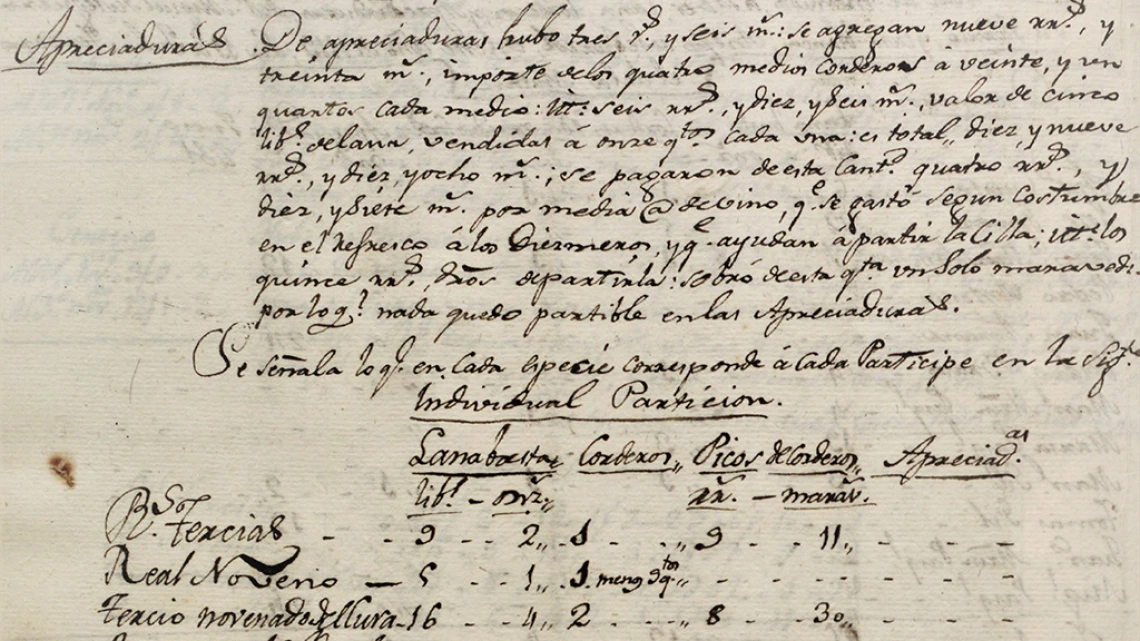 Apreciaduras. De apreciaduras hubo tres rs., y seis ms.: se agregan nueve rrs., y
treinta ms., importe de los quatro medios corderos à veinte, y un
quartos cada medio: Itt. seis rrs., y diez, y seis ms., valor de cinco
libs. de lana, vendidas à onze qtos cada una: es total,, diez, y nueve
rrs., y diez, y ocho ms.; se pagaron de esta cantd. quatro rrs., y
diez, y siete ms. por media @ de vino, qe. se gastó segun costumbre
en el refresco à los Diezmeros, y q. ayudan à partir la Cilla; itt. los
quince rrs., dros de partirla: sobró de esta qta un solo maravedi
por lo ql. nada quedo partible en las Apreciaduras.
Se señala lo q. en cada especie corresponde à cada Participe en la sigte.
Individual Particion.
Lana basta,, Corderos,, Picos de Corderos,, Apreciad.as
libs. - onzs,, rrs. - maravs.
Rs. Tercias - - 9 - - 2,, 1 - - ,, 9 - - 11,, - - -
Real Noveno - 5 - - 1,, 1 menos 9 qtos,, - - - - - -
Tercio novenado de llura - 16 - - 4,, 2 - - ,, 8 - - 30,, - - -